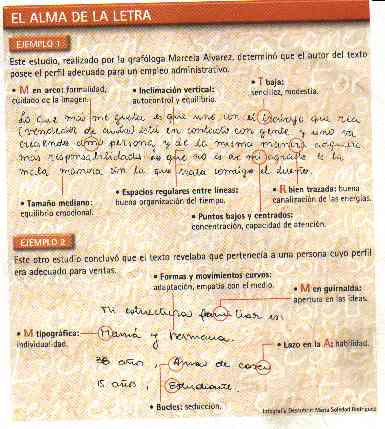 EL ALMA DE LA LETRA
EJEMPLO 1
Este estudio, realizado por la grafóloga Marcela Alvarez, determinó que el autor del texto
posee el perfil adecuado para un empleo administrativo.
• M en arco: formalidad,
cuidado de la imagen.
• Inclinación vertical:
autocontrol y equilibrio.
• T baja:
sencillez, modestia.
Lo que más me gusta es que uno con el trabajo que sea
(vendedor de autos) está en contacto con gente, y uno va
creciendo como persona, y de la misma manera adquiere
más responsabilidades, lo que no es de mi agrado es la
mala manera en la que trata conmigo el dueño.
• Tamaño mediano:
equilibrio emocional.
• Espacios regulares entre líneas:
buena organización del tiempo.
• R bien trazada: buena
canalización de las energías.
• Puntos bajos y centrados:
concentración, capacidad de atención.
EJEMPLO 2
Este otro estudio concluyó que el texto revelaba que pertenecía a una persona cuyo perfil
era adecuado para ventas.
• Formas y movimientos curvos:
adaptación, empatía con el medio.
• M en guirnalda:
apertura en las ideas.
Mi estructura familiar es:
• M tipográfica:
individualidad.
Mamá y hermana.
• Lazo en la A: habilidad.
38 años, Ama de casa
15 años, Estudiante.
• Bucles: seducción.
Infografía Descubrir: María Soledad Rodríguez